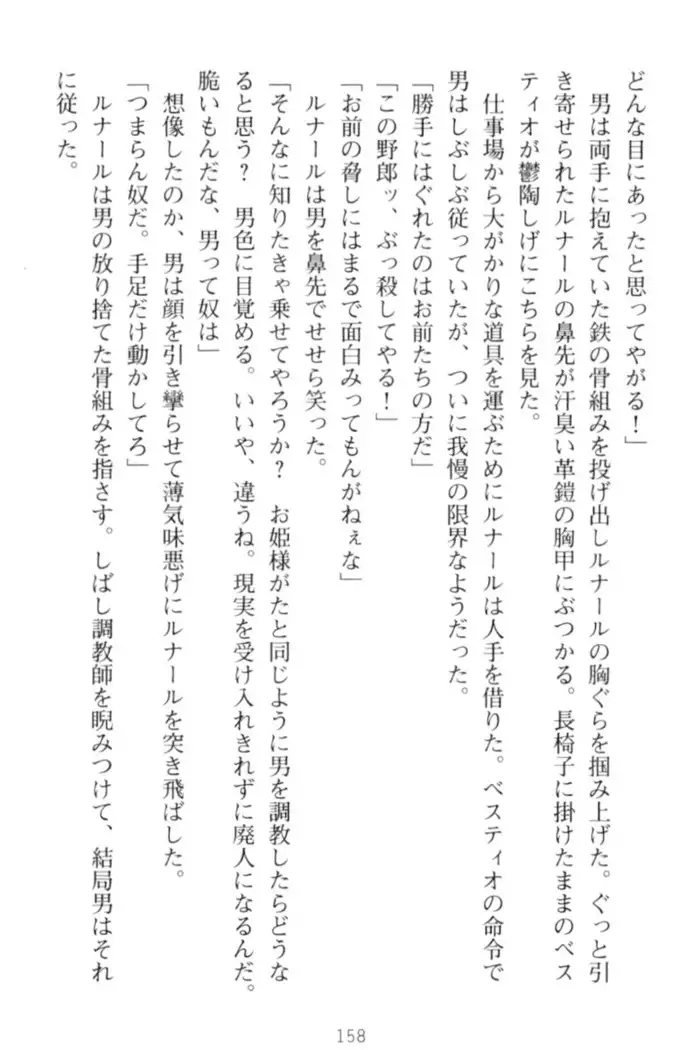 どんな目にあったと思ってやがる！」
　男は両手に抱えていた鉄の骨組みを投げ出しルナールの胸ぐらを掴み上げた。ぐっと引
き寄せられたルナールの鼻先が汗臭い革鎧の胸甲にぶつかる。長椅子に掛けたままのベス
ティオが鬱陶しげにこちらを見た。
　仕事場から大がかりな道具を運ぶためにルナールは人手を借りた。ベスティオの命令で
男はしぶしぶ従っていたが、ついに我慢の限界なようだった。
「勝手にはぐれたのはお前たちの方だ」
「この野郎ッ、ぶっ殺してやる！」
「お前の脅しにはまるで面白みってもんがねぇな」
　ルナールは男を鼻先でせせら笑った。
「そんなに知りたきゃ乗せてやろうか？　お姫様がたと同じように男を調教したらどうな
ると思う？　男色に目覚める。いいや、違うね。現実を受け入れきれずに廃人になるんだ。
脆いもんだな、男って奴は」
　想像したのか、男は顔を引き攣らせて薄気味悪げにルナールを突き飛ばした。
「つまらん奴だ。手足だけ動かしてろ」
　ルナールは男の放り捨てた骨組みを指さす。しばし調教師を睨みつけて、結局男はそれ
に従った。
158